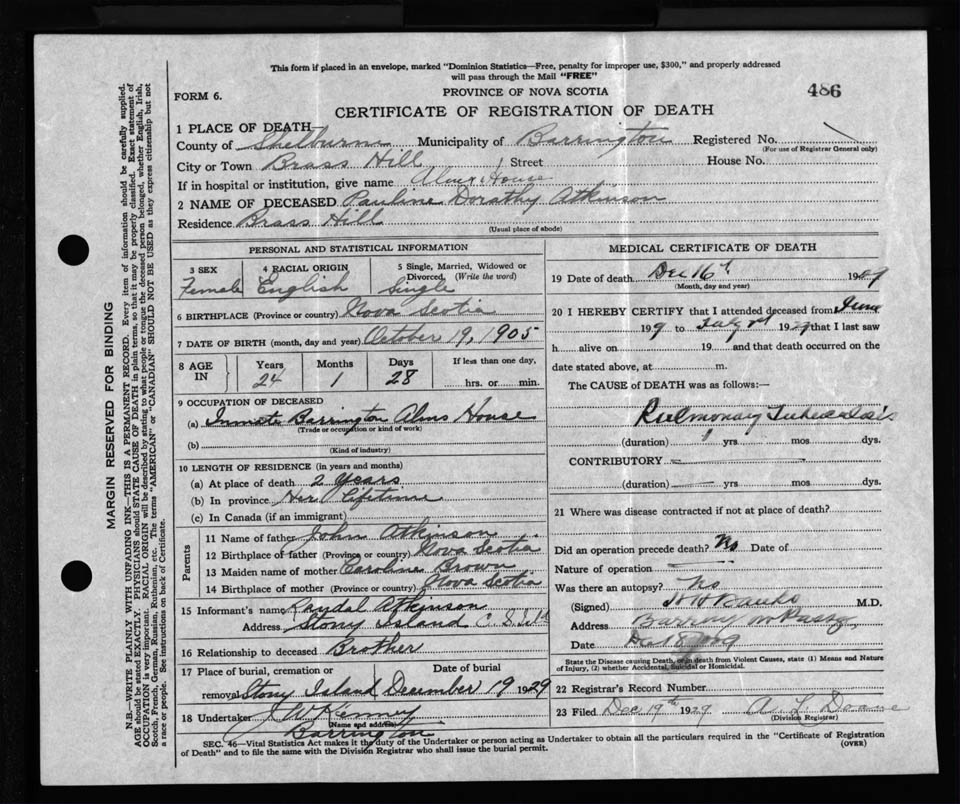 This form if placed in an envelope, marked "Dominion Statistics—Free, penalty for improper use, $300," and properly addressed
will pass through the Mail "FREE"
FORM 6.
PROVINCE OF NOVA SCOTIA
486
CERTIFICATE OF REGISTRATION OF DEATH
1 PLACE OF DEATH
County of Shelburne Municipality of Barrington Registered No.
(For use of Registrar General only)
City or Town Brass Hill Street House No.
If in hospital or institution, give name Alms House
2 NAME OF DECEASED Pauline Dorathy Atkinson
Residence Brass Hill
(Usual place of abode)
PERSONAL AND STATISTICAL INFORMATION
3 SEX Female
4 RACIAL ORIGIN English
5 Single, Married, Widowed or Divorced, (Write the word) Single
6 BIRTHPLACE (Province or country) Nova Scotia
7 DATE OF BIRTH (month, day and year) October 19, 1905
8 AGE IN Years 24 Months 1 Days 28 If less than one day, hrs. or min.
9 OCCUPATION OF DECEASED
(a) Inmate Barrington Alms House
(Trade or occupation or kind of work)
(b)
(Kind of industry)
10 LENGTH OF RESIDENCE (in years and months)
(a) At place of death 2 Years
(b) In province Her Lifetime
(c) In Canada (if an immigrant)
Parents
11 Name of father John Atkinson
12 Birthplace of father (Province or country) Nova Scotia
13 Maiden name of mother Caroline Brown
14 Birthplace of mother (Province or country) Nova Scotia
15 Informant's name Atkinson
Address Stony Island
16 Relationship to deceased Brother
17 Place of burial, cremation or Date of burial
removal Stony Island December 19 1929
18 Undertaker J W Kenney
(Name and address)
Barrington
MEDICAL CERTIFICATE OF DEATH
19 Date of death Dec 16th
(Month, day and year)
20 I HEREBY CERTIFY that I attended deceased from June
to July 1929 that I last saw
h alive on 19 and that death occurred on the
date stated above, at m.
The CAUSE of DEATH was as follows:—
Pulmonary Tuberculosis
(duration) 1 yrs mos dys.
CONTRIBUTORY
(duration) yrs mos dys.
21 Where was disease contracted if not at place of death?
Did an operation precede death? No Date of
Nature of operation
Was there an autopsy? No
(Signed) M.D.
Address Barrington Passage
Date
State the Disease causing Death, or in death from Violent Causes, state (1) Means and Nature
of Injury, (2) whether Accidental, Suicidal or Homicidal.
22 Registrar's Record Number
23 Filed Dec 19th 1929 A. L. Doane
(Division Registrar)
SEC. 46—Vital Statistics Act makes it the duty of the Undertaker or person acting as Undertaker to obtain all the particulars required in the "Certificate of Registration
of Death" and to file the same with the Division Registrar who shall issue the burial permit.
(OVER)
MARGIN RESERVED FOR BINDING
N.B.—WRITE PLAINLY WITH UNFADING INK—THIS IS A PERMANENT RECORD. Every item of information should be carefully supplied.
AGE should be stated EXACTLY. PHYSICIANS should STATE CAUSE OF DEATH in plain terms, so that it may be properly classified. Exact statement of
OCCUPATION is very important. RACIAL ORIGIN will be described by stating to what people or tongue the deceased person belonged, whether English, Irish,
Scotch, French, German, Russian, Ruthenian, etc. The terms "AMERICAN" or "CANADIAN" SHOULD NOT BE USED as they express citizenship but not
a race or people. See instructions on back of Certificate.